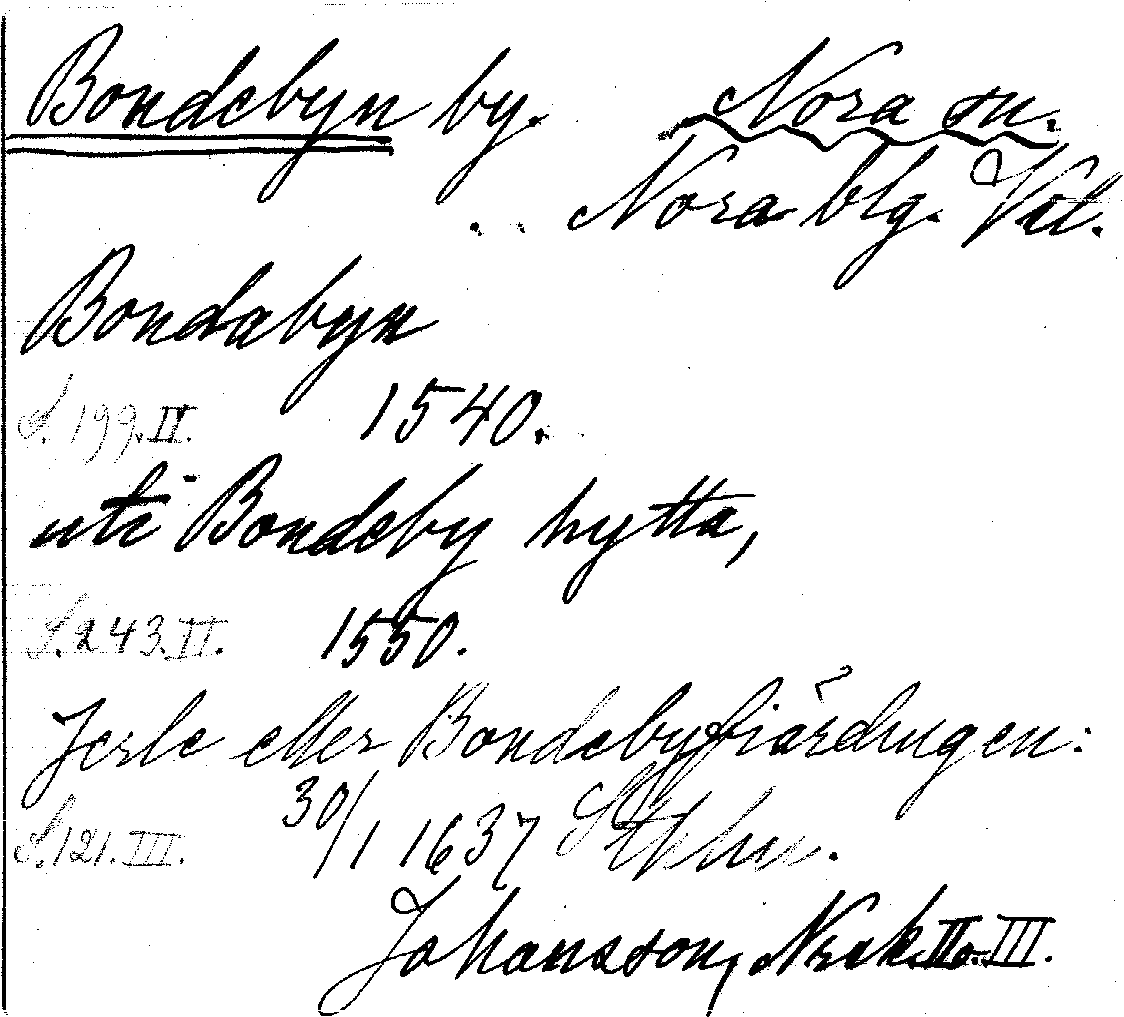 Bondebyn by. Nora sn.
Nora blg. Vstl.
Bondabyn
S. 199. II. 1540.
uti Bondeby hytta,
S. 243. II. 1550.
Jerle eller Bondebyfiärdingen:
S. 121. III. 30/1 1637 Sthlm.
Johansson, Nrsk. II o. III.